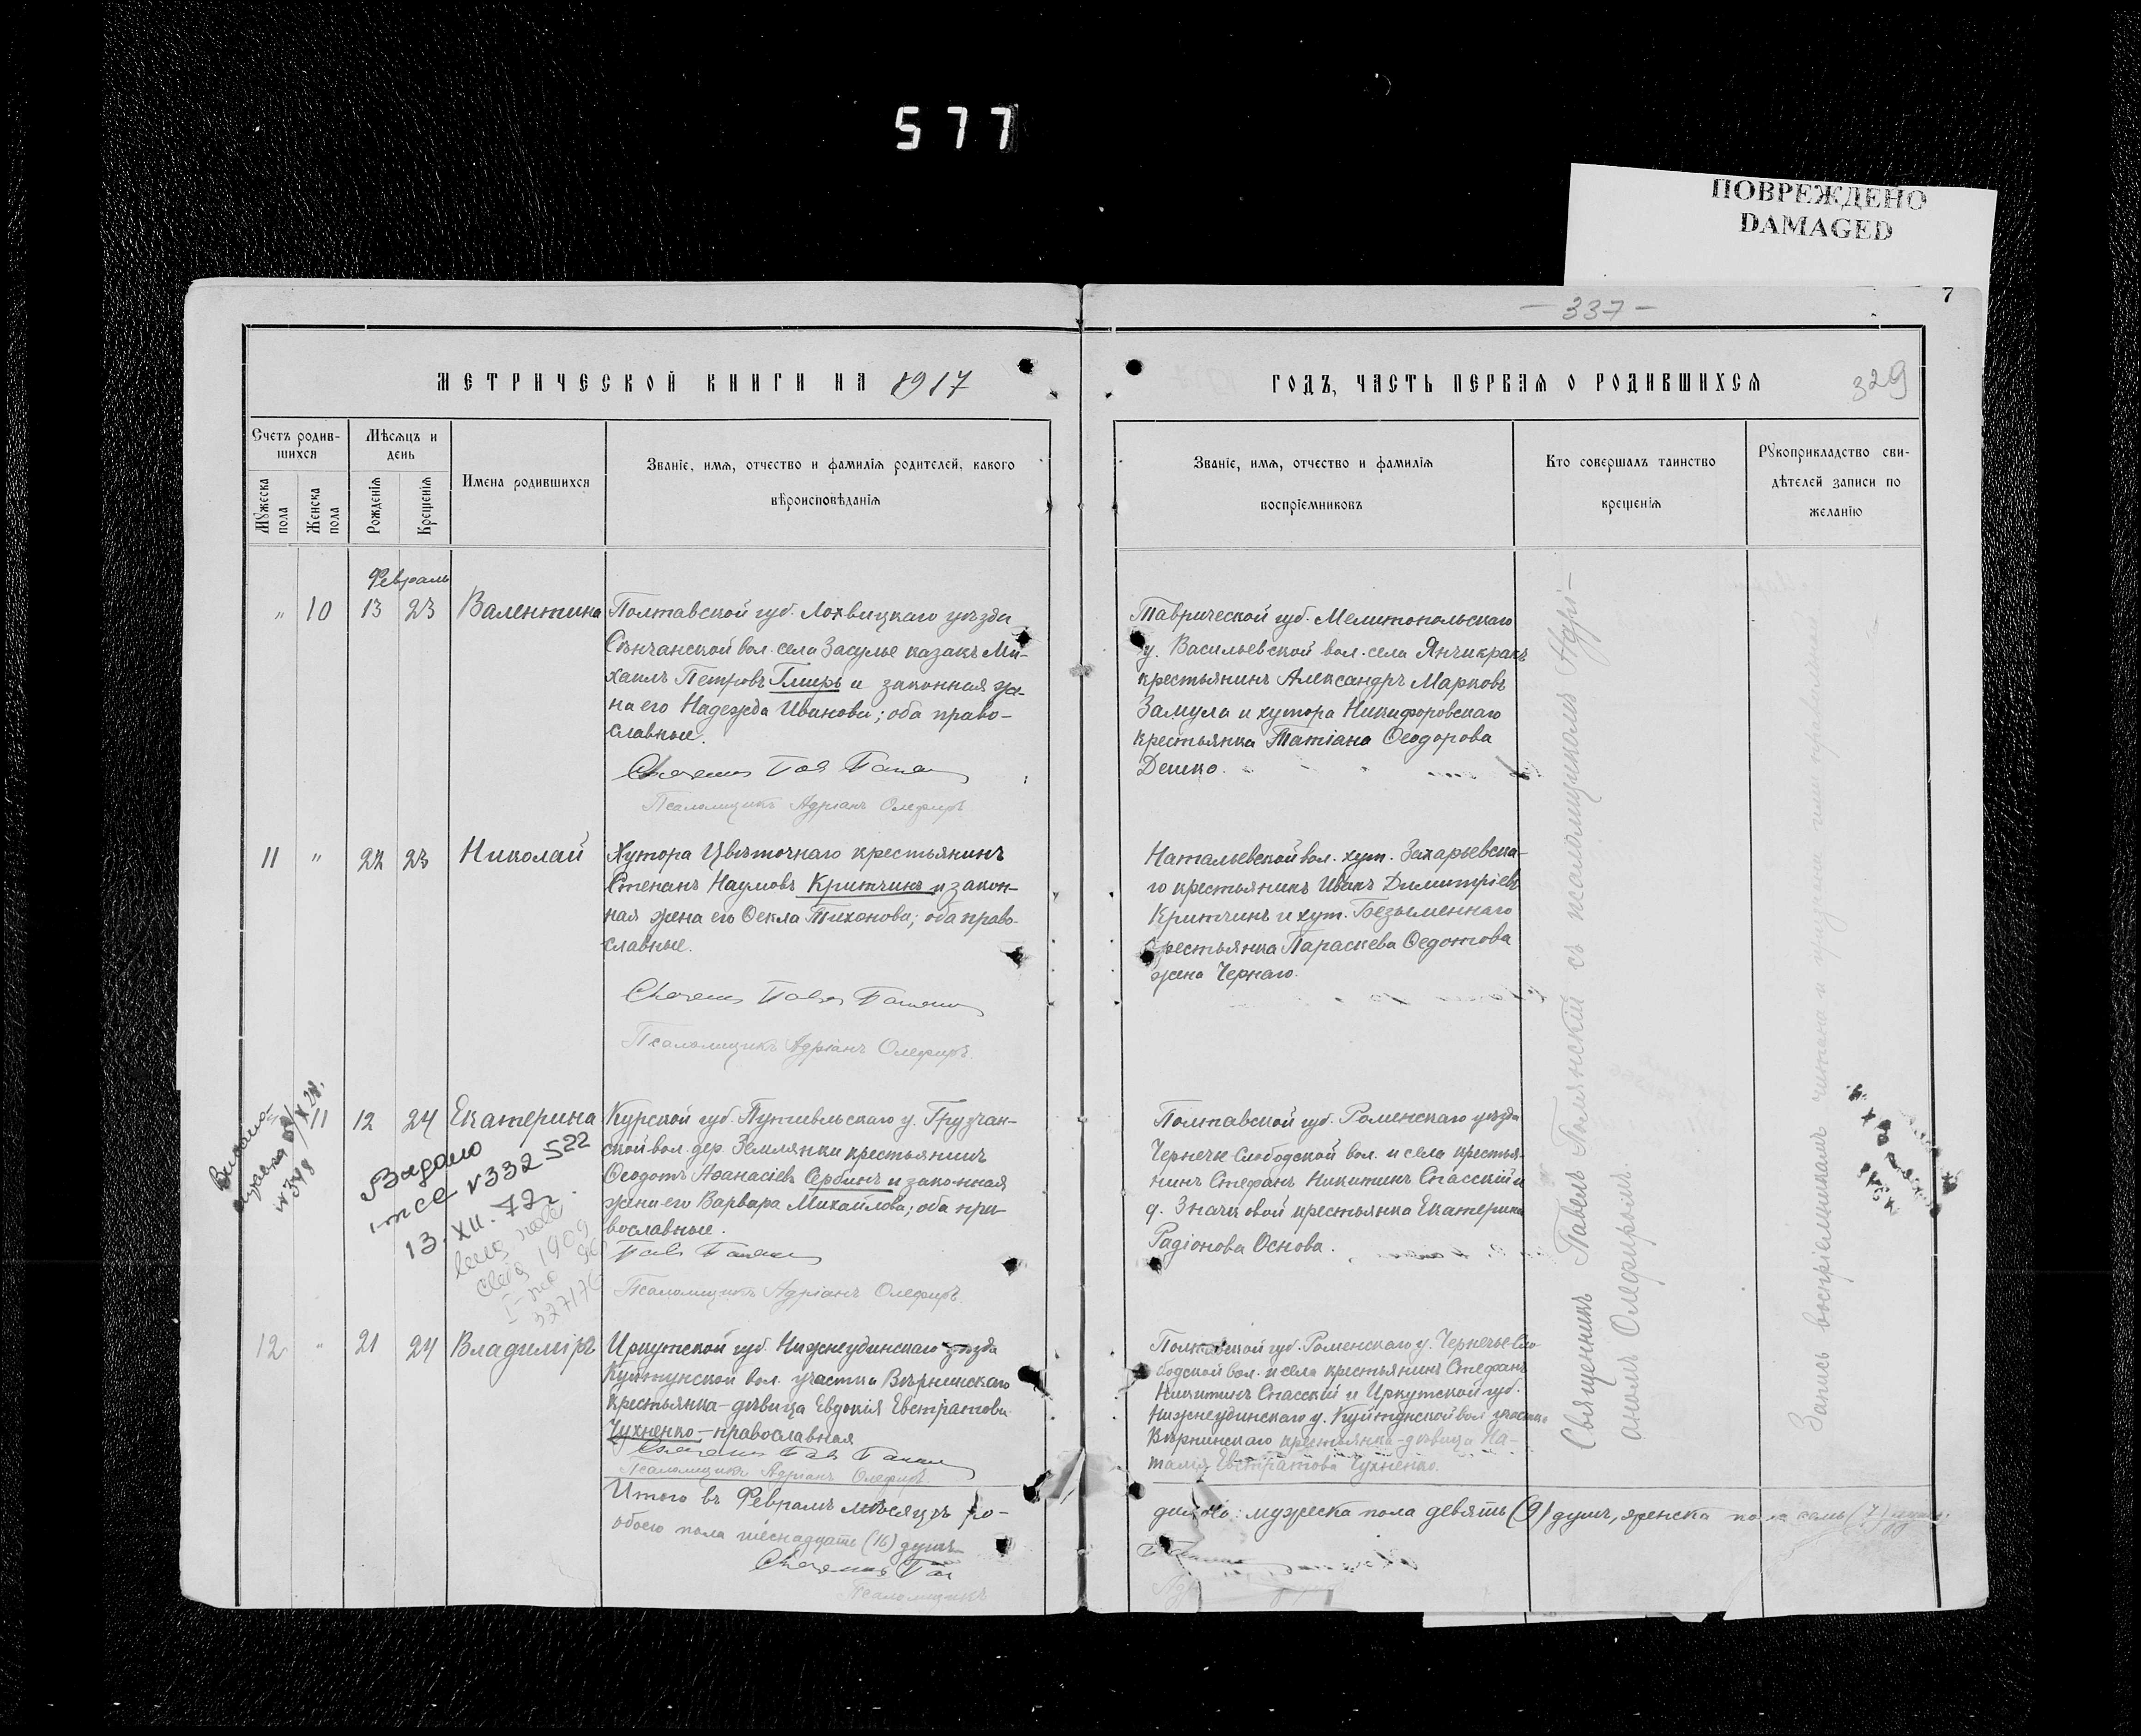 577
ПОВРЕЖДЕНО
DAMAGED
— 337 —
7
МЕТРИЧЕСКОЙ КНИГИ НА 1917
ГОДЪ, ЧАСТЬ ПЕРВАЯ О РОДИВШИХСЯ
329
Счетъ родив-
шихся
Мужеска пола
Женска пола
Мѣсяцъ и
день
Рожденія
Крещенія
Имена родившихся
Званіе, имя, отчество и фамилія родителей, какого
вѣроисповѣданія
Званіе, имя, отчество и фамилія
воспріемниковъ
Кто совершалъ таинство
крещенія
Рукоприкладство сви-
дѣтелей записи по
желанію
Февраль
" 10 13 23 Валентина
Полтавской губ. Лохвицкаго уѣзда
Сѣнчанской вол. села Засулье казакъ Ми-
хаилъ Петровъ Гмирь и законная же-
на его Надежда Иванова; оба право-
славные.
Псаломщикъ Адріанъ Олефиръ
Таврической губ. Мелитопольскаго
у. Васильевской вол. села Янчикракъ
крестьянинъ Александръ Марковъ
Замула и хутора Никифоровскаго
крестьянка Татіана Ѳеодорова
Дешко.
11 " 22 23 Николай
Хутора Цвѣточнаго крестьянинъ
Степанъ Наумовъ Критчинъ и закон-
ная жена его Ѳекла Тихонова; оба право-
славные.
Псаломщикъ Адріанъ Олефиръ.
Натальевской вол. хут. Захарьевска-
го крестьянинъ Иванъ Димитріевъ
Критчинъ и хут. Безыменнаго
крестьянка Параскева Ѳедотова
жена Чернаго.
11 12 24 Екатерина
Курской губ. Путивльскаго у. Грузчан-
ской вол. дер. Землянки крестьянинъ
Ѳеодотъ Аѳанасіевъ Сербинъ и законная
жена его Варвара Михайлова; оба пра-
вославные.
Псаломщикъ Адріанъ Олефиръ.
Полтавской губ. Роменскаго уѣзда
Чернече-Слободской вол. и села крестья-
нинъ Стефанъ Никитинъ Спасскій и
д. Значковой крестьянка Екатерина
Радіонова Основа.
Выдано
13.XII.72г.
12 " 21 24 Владиміръ
Иркутской губ. Нижнеудинскаго уѣзда
Куйтунской вол. участка Вѣрнинскаго
крестьянка-дѣвица Евдокія Евстратова
Чухненко-православная
Псаломщикъ Адріанъ Олефиръ
Полтавской губ. Роменскаго у. Чернечье-Сло-
бодской вол. и села крестьянинъ Стефанъ
Никитинъ Спасскій и Иркутской губ.
Нижнеудинскаго у. Куйтунской вол. участка
Вѣрнинскаго крестьянка-дѣвица На-
талія Евстратова Чухненко.
Священникъ Павелъ Полянскій съ псаломщикомъ Адрі-
аномъ Олефиромъ.
Запись воспріемникамъ читана и
Итого въ Февралѣ мѣсяцѣ ро-
дилось: мужеска пола девять (9) душъ, женска пола семь (7) душъ
обоего пола шестнадцать (16) душъ
Псаломщикъ